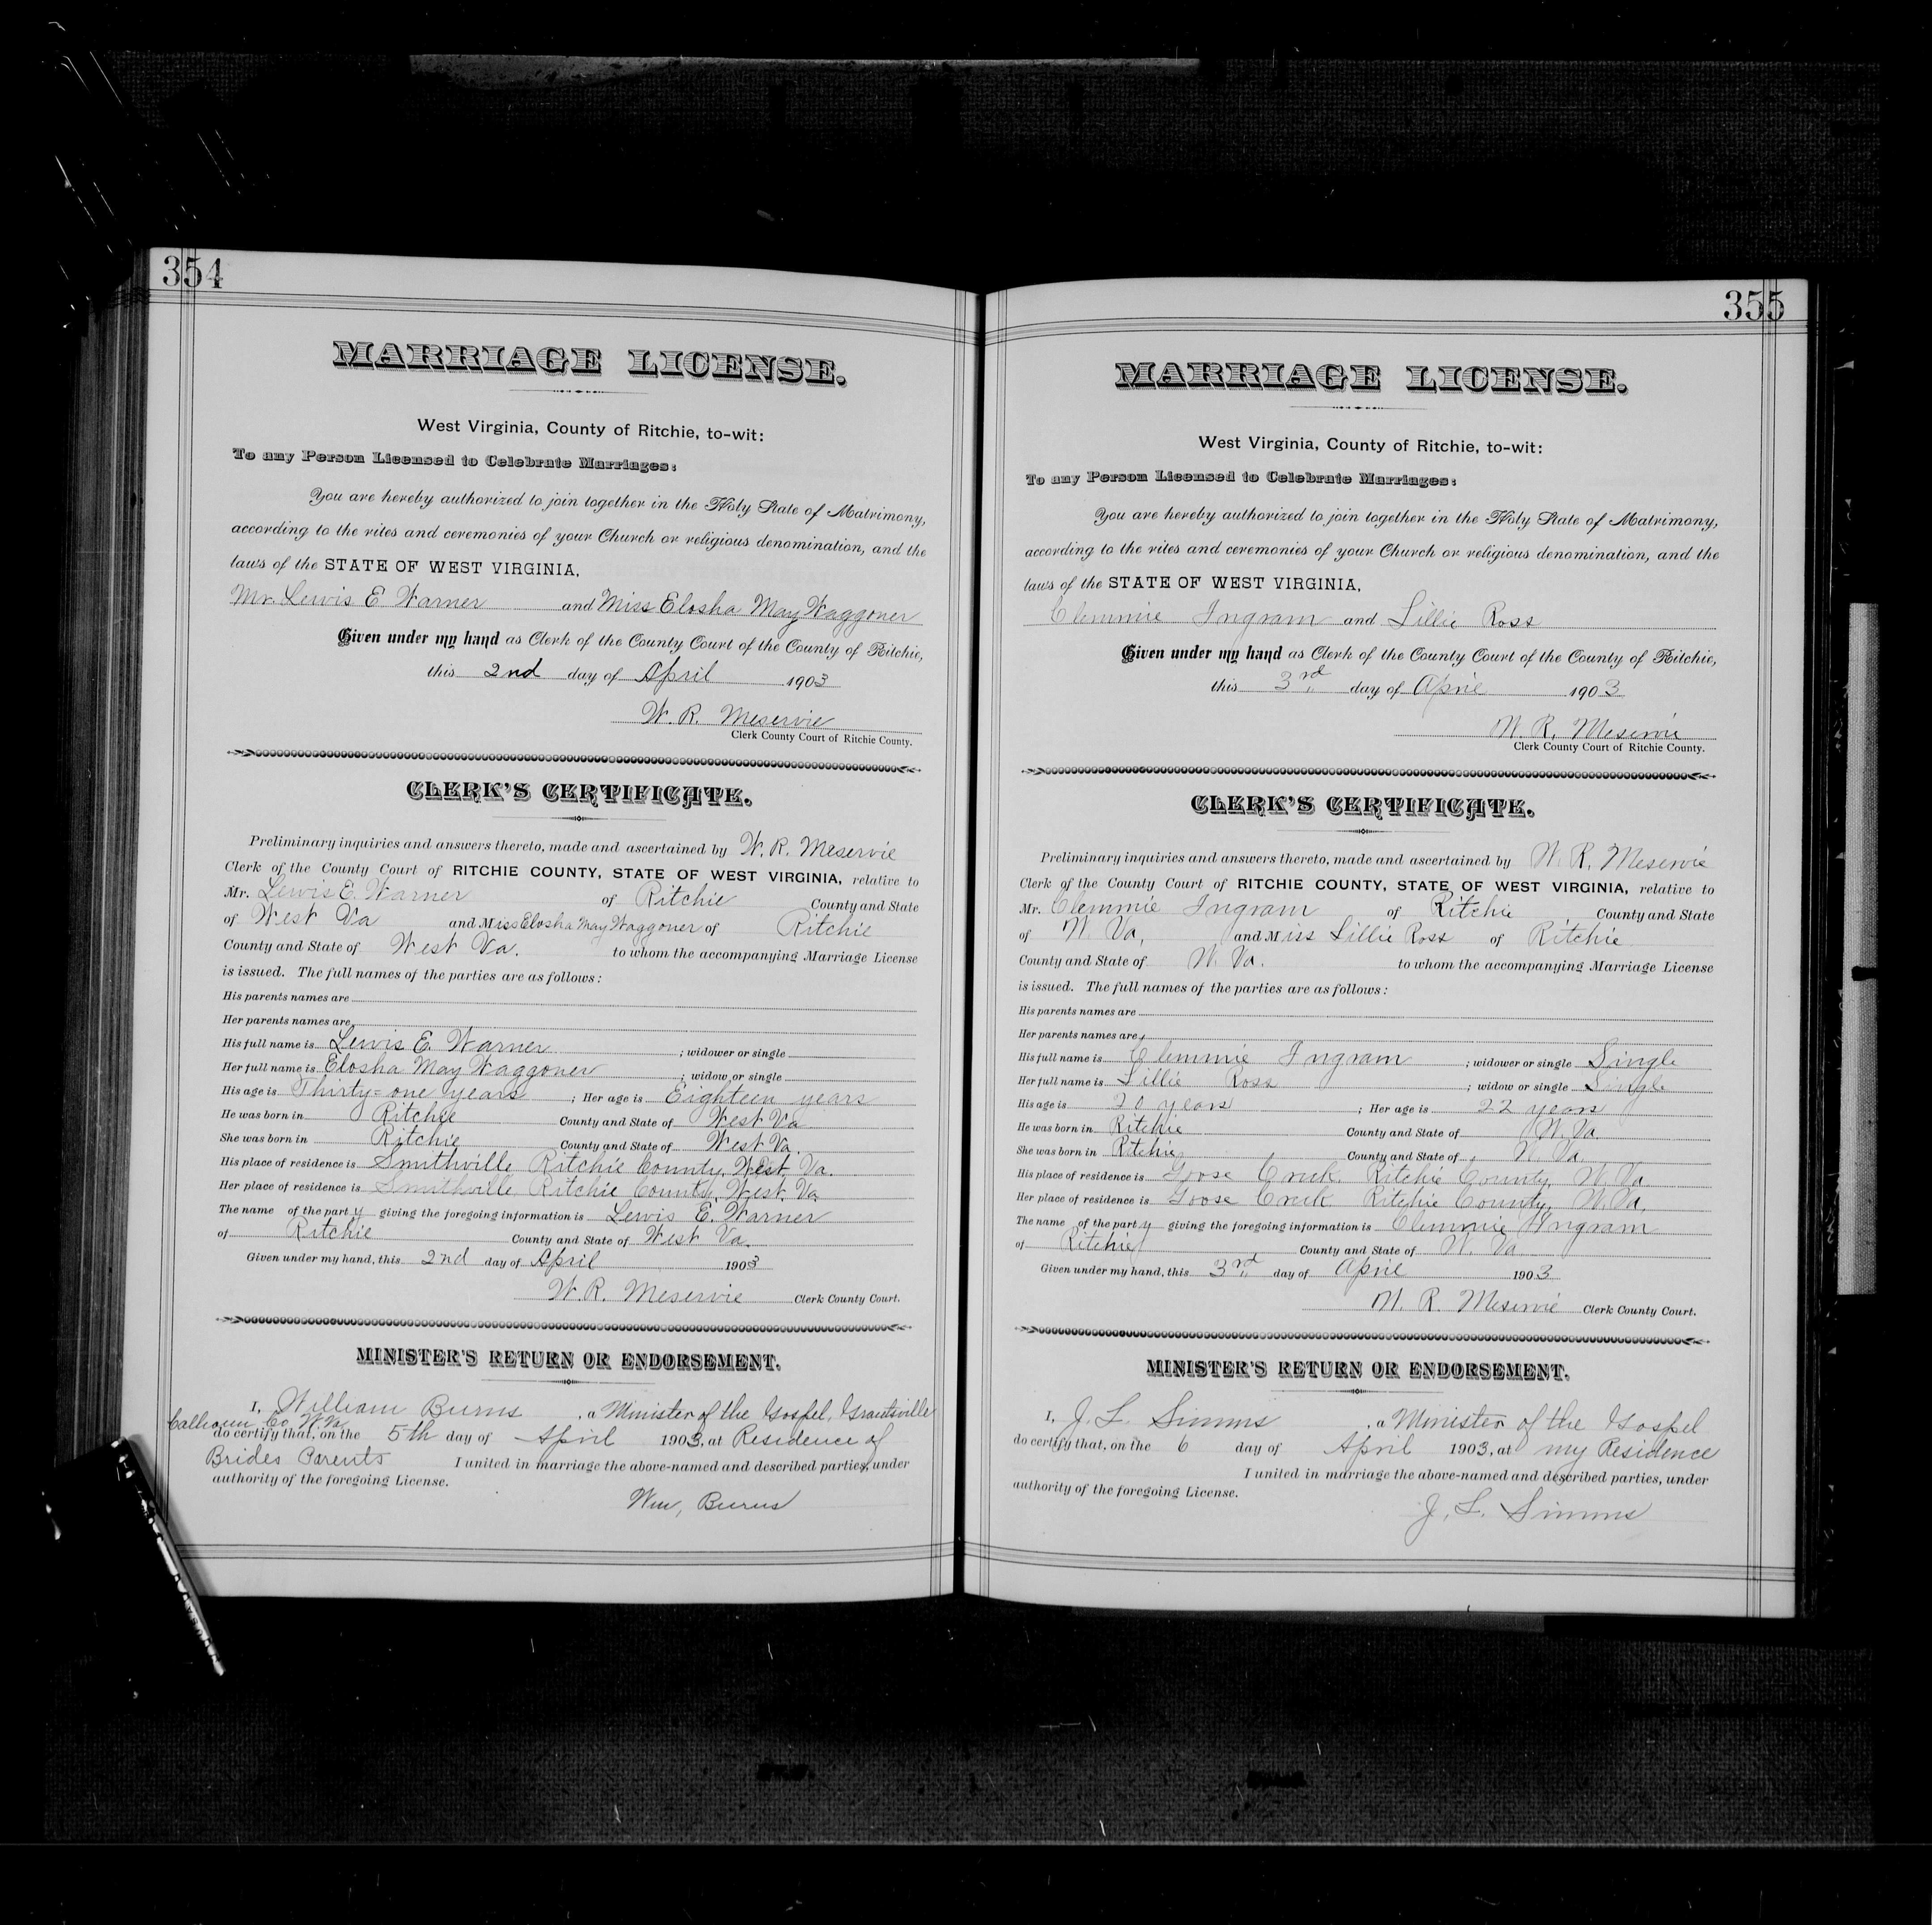 354
MARRIAGE LICENSE.
West Virginia, County of Ritchie, to-wit:
To any Person Licensed to Celebrate Marriages:
You are hereby authorized to join together in the Holy State of Matrimony,
according to the rites and ceremonies of your Church or religious denomination, and the
laws of the STATE OF WEST VIRGINIA,
Mr. Lewis E. Warner and Miss Elosha May Waggoner
Given under my hand as Clerk of the County Court of the County of Ritchie,
this 2nd day of April 1903
W. R. Meservie
Clerk County Court of Ritchie County.
CLERK'S CERTIFICATE.
Preliminary inquiries and answers thereto, made and ascertained by W. R. Meservie
Clerk of the County Court of RITCHIE COUNTY, STATE OF WEST VIRGINIA, relative to
Mr. Lewis E. Warner of Ritchie County and State
of West Va and Miss Elosha May Waggoner of Ritchie
County and State of West Va. to whom the accompanying Marriage License
is issued. The full names of the parties are as follows:
His parents names are
Her parents names are
His full name is Lewis E. Warner ; widower or single
Her full name is Elosha May Waggoner ; widow or single
His age is Thirty=one years ; Her age is Eighteen years
He was born in Ritchie County and State of West Va
She was born in Ritchie County and State of West Va.
His place of residence is Smithville Ritchie County, West Va.
Her place of residence is Smithville Ritchie County, West Va
The name of the party giving the foregoing information is Lewis E. Warner
of Ritchie County and State of West Va.
Given under my hand, this 2nd day of April 1903
W. R. Meservie Clerk County Court.
MINISTER'S RETURN OR ENDORSEMENT.
I, William Burns , a Minister of the Gospel, Grantsville
Calhoun Co. W.Va
do certify that, on the 5th day of April 1903, at Residence of
Brides Parents I united in marriage the above-named and described parties, under
authority of the foregoing License.
Wm, Burns
355
MARRIAGE LICENSE.
West Virginia, County of Ritchie, to-wit:
To any Person Licensed to Celebrate Marriages:
You are hereby authorized to join together in the Holy State of Matrimony,
according to the rites and ceremonies of your Church or religious denomination, and the
laws of the STATE OF WEST VIRGINIA,
Clemmie Ingram and Lillie Ross
Given under my hand as Clerk of the County Court of the County of Ritchie,
this 3rd day of April 1903
W. R. Meservie
Clerk County Court of Ritchie County.
CLERK'S CERTIFICATE.
Preliminary inquiries and answers thereto, made and ascertained by W. R. Meservie
Clerk of the County Court of RITCHIE COUNTY, STATE OF WEST VIRGINIA, relative to
Mr. Clemmie Ingram of Ritchie County and State
of W. Va, and Miss Lillie Ross of Ritchie
County and State of W. Va. to whom the accompanying Marriage License
is issued. The full names of the parties are as follows:
His parents names are
Her parents names are
His full name is Clemmie Ingram ; widower or single Single
Her full name is Lillie Ross ; widow or single Single
His age is 20 years ; Her age is 22 years
He was born in Ritchie County and State of W. Va.
She was born in Ritchie County and State of W. Va.
His place of residence is Goose Creek. Ritchie County, W. Va
Her place of residence is Goose Creek Ritchie County, W. Va,
The name of the party giving the foregoing information is Clemmie Ingram
of Ritchie County and State of W. Va
Given under my hand, this 3rd day of April 1903
W. R. Meservie Clerk County Court.
MINISTER'S RETURN OR ENDORSEMENT.
I, J. L. Simms , a Minister of the Gospel
do certify that, on the 6 day of April 1903, at my Residence
I united in marriage the above-named and described parties, under
authority of the foregoing License.
J. L. Simms